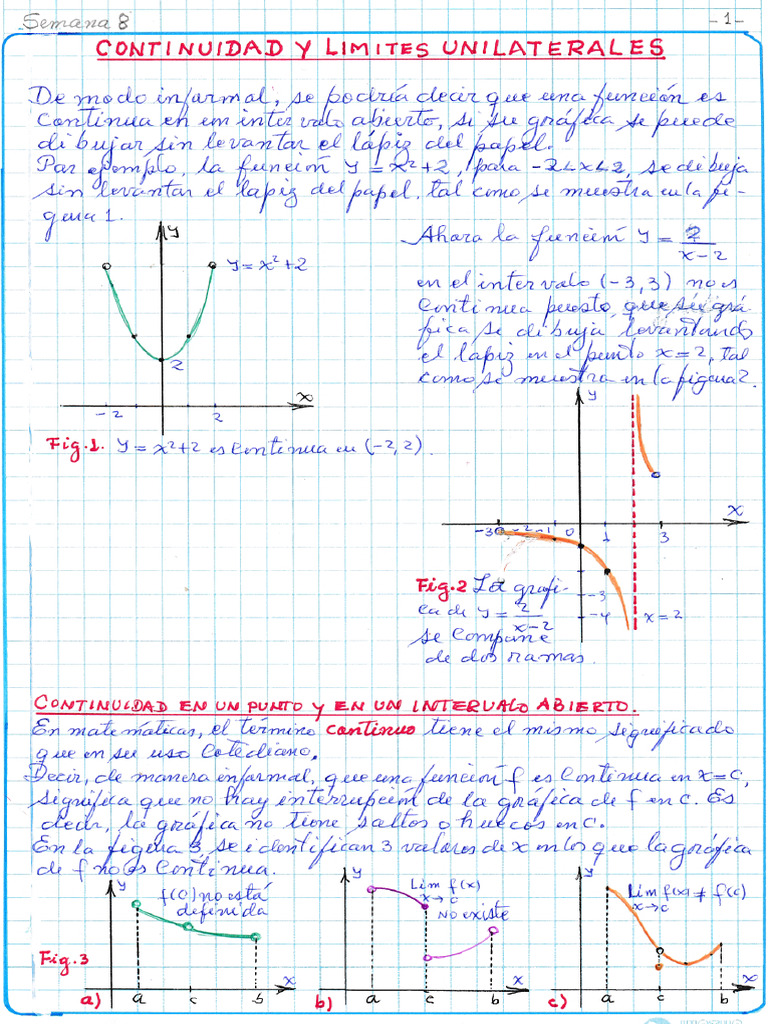 Semana 8
- 1 -
CONTINUIDAD Y LIMITES UNILATERALES
De modo informal, se podría decir que una función es
continua en un intervalo abierto, si su gráfica se puede
dibujar sin levantar el lápiz del papel.
Por ejemplo, la función y = x²+2, para -2<x<2, se dibuja
sin levantar el lapiz del papel, tal como se muestra en la fi-
gura 1.
y
y = x²+2
2
x
-2
2
Fig.1. y = x²+2 es continua en (-2,2).
Ahora la función y = 2/(x-2)
en el intervalo (-3,3) no es
continua puesto que su grá-
fica se dibuja levantando
el lápiz en el punto x=2, tal
como se muestra en la figura 2.
y
x
-3 -2 -1 0 1 3
-3
-4
x=2
Fig.2 La gráfi-
ca de y = 2/(x-2)
se compone
de dos ramas.
CONTINUIDAD EN UN PUNTO Y EN UN INTERVALO ABIERTO.
En matemáticas, el término continuo tiene el mismo significado
que en su uso cotidiano.
Decir, de manera informal, que una función f es continua en x=c,
significa que no hay interrupción de la gráfica de f en c. Es
decir, la gráfica no tiene saltos o huecos en c.
En la figura 3 se identifican 3 valores de x en los que la gráfica
de f no es continua.
Fig.3
y
f(c) no está
definida
x
a) a c b
y
Lim f(x)
x→c
No existe
x
b) a c b
y
Lim f(x) ≠ f(c)
x→c
x
c) a c b